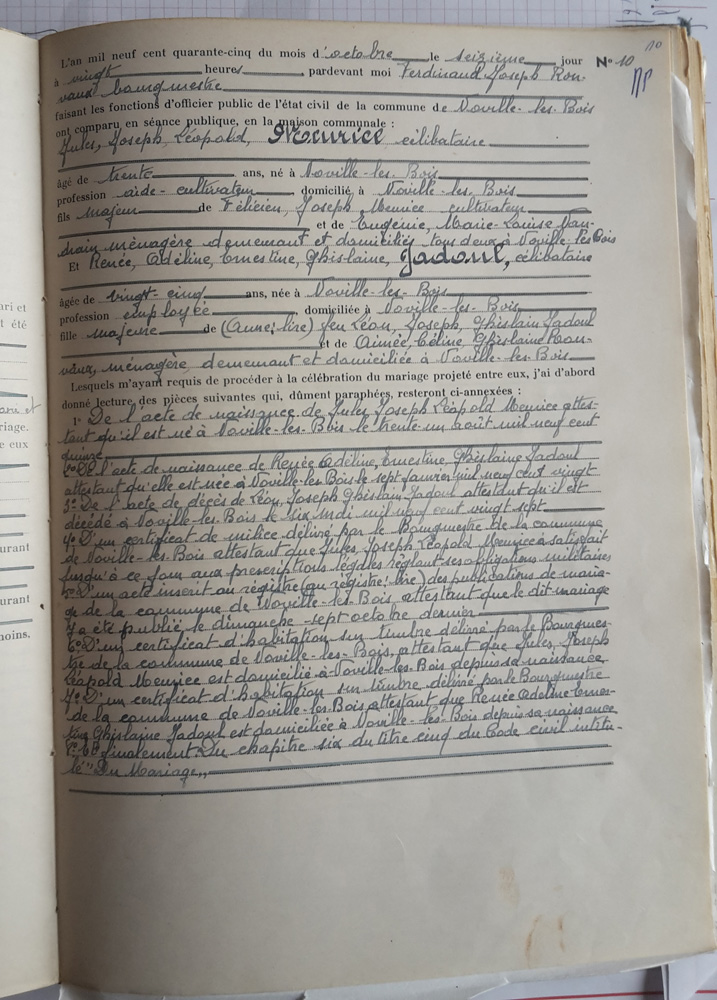 10
L'an mil neuf cent quarante-cinq du mois d'octobre le seizième jour N° 10
à vingt heures, pardevant moi Ferdinand Joseph Ron-
vaux bourgmestre
faisant les fonctions d'officier public de l'état civil de la commune de Noville-les-Bois
ont comparu en séance publique, en la maison communale :
Jules, Joseph, Léopold, Meurice célibataire
âgé de trente ans, né à Noville-les-Bois
profession aide-cultivateur, domicilié, à Noville-les-Bois
fils majeur de Félicien, Joseph Meurice cultivateur
et de Eugénie, Marie-Louise
ménagère demeurant et domiciliés tous deux à Noville-les-Bois
Et Renée, Adéline, Ernestine, Ghislaine, Jadoul, célibataire
âgée de vingt-cinq ans, née à Noville-les-Bois
profession employée, domiciliée à Noville-les-Bois
fille majeure de (Anne: lire) feu Léon, Joseph, Ghislain Jadoul
et de Aimée, Céline, Ghislaine Ron-
vaux, ménagère demeurant et domiciliée à Noville-les-Bois
Lesquels m'ayant requis de procéder à la célébration du mariage projeté entre eux, j'ai d'abord
donné lecture des pièces suivantes qui, dûment paraphées, resteront ci-annexées :
1° De l'acte de naissance de Jules Joseph Léopold Meurice attes-
tant qu'il est né à Noville-les-Bois le trente un août mil neuf cent
quinze
2° De l'acte de naissance de Renée Adéline, Ernestine, Ghislaine Jadoul
attestant qu'elle est née à Noville-les-Bois le sept janvier mil neuf cent vingt
3° De l'acte de décès de Léon, Joseph Ghislain Jadoul attestant qu'il est
décédé à Noville-les-Bois le six mai mil neuf cent vingt sept
4° D'un certificat de milice délivré par le Bourgmestre de la commune
de Noville-les-Bois attestant que Jules, Joseph Léopold Meurice a satisfait
jusqu'à ce jour aux prescriptions légales réglant ses obligations militaires
5° D'un acte inscrit au régistre (au régistre: lire) des publications de maria-
ge de la commune de Noville-les-Bois attestant que le dit mariage
y a été publié le dimanche sept octobre dernier
6° D'un certificat d'habitation sur timbre délivré par le Bourgmes-
tre de la commune de Noville-les-Bois, attestant que Jules, Joseph
Léopold Meurice est domicilié à Noville-les-Bois depuis sa naissance
7° D'un certificat d'habitation sur timbre délivré par le Bourgmestre
de la commune de Noville-les-Bois attestant que Renée Adéline Ernes-
tine Ghislaine Jadoul est domiciliée à Noville-les-Bois depuis sa naissance
8° Et finalement Du chapitre six du titre cinq du Code civil intitu-
lé "Du Mariage"
ari et
t été
riage.
e eux
urant
urant
moins.